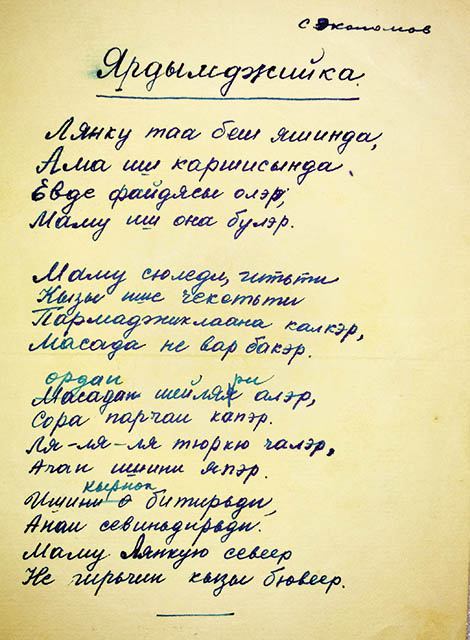 С Экономов
Ярдымджийка.
Лянку таа беш яшинда,
Ама иш каршисында.
Евде файдясы олэр,
Маму иш она булэр.
Маму сюледи, гитьти
Кызы ише чекетьти
Пармаджиклаана калкэр,
Масада не вар бакэр.
ордан ри
Масадан шейляя алэр,
Сора парчаи капэр.
Ля-ля-ля тюркю чалэр,
Ачан ишини япэр.
кырнак
Ишини о битирьди,
Анаи севиндирьди.
Маму Лянкую севеер
Не гирьгин кызы бювеер.